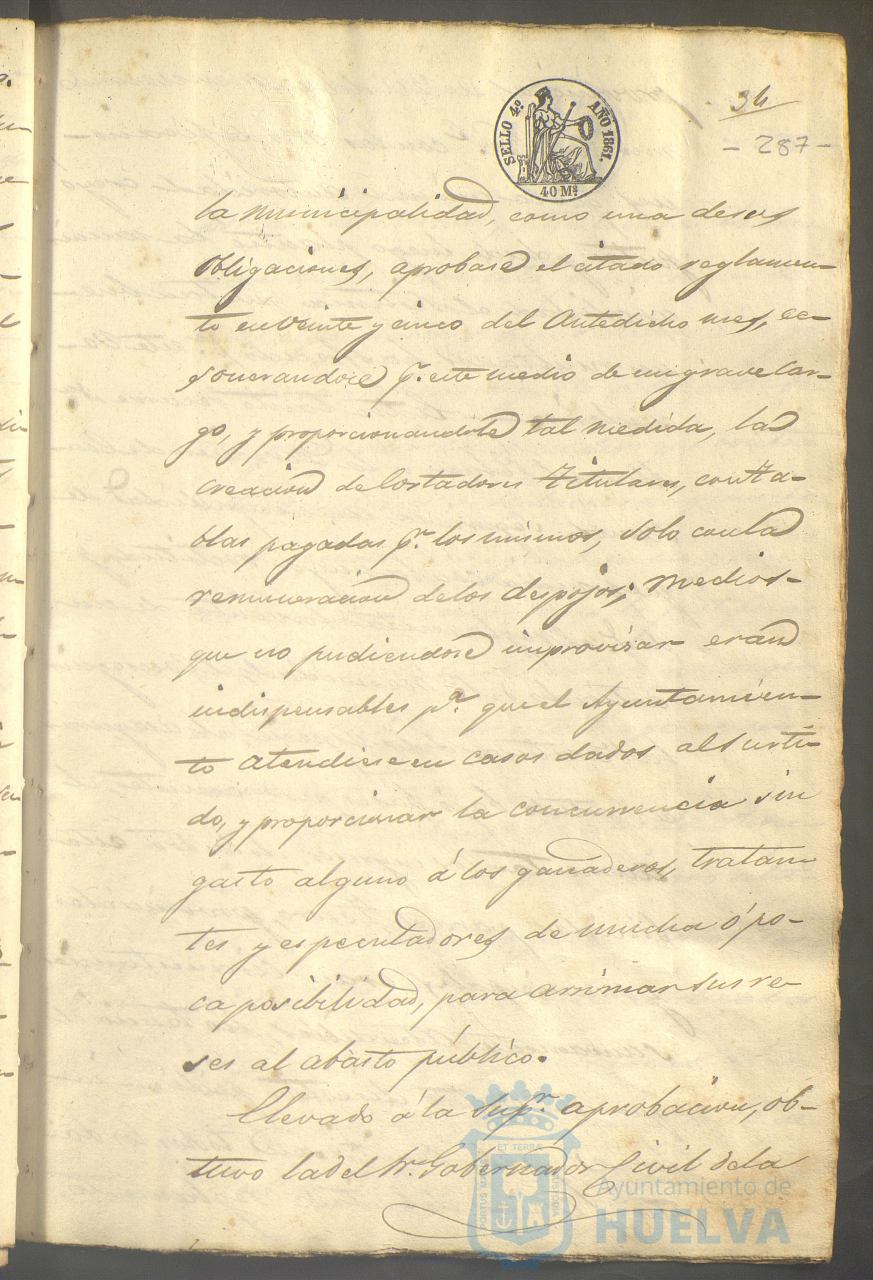 SELLO 4.º AÑO 1861.
40 Ms.
34
- 287 -
la Municipalidad, como una de sus
obligaciones, aprobase el citado reglamen-
to en veinte y cinco del Antedicho mes, ec-
sonerandose pr. este medio de un grave car-
go, y proporcionandole tal medida, la
creacion de Cortadores titulares, con ta-
blas pagadas pr. los mismos, solo con la
remuneracion de los despojos; medios-
que no pudiendose improvisar eran
indispensables pa. que el Ayuntamien-
to atendiese en casos dados al surti-
do, y proporcionar la concurrencia sin
gasto alguno á los ganaderos, tratan-
tes y especuladores de mucha ó po-
ca posibilidad, para arrimar sus re-
ses al abàsto público.
Llevado á la Supr. aprobacion, ob-
tuvo la del Sr. Gobernador Civil de la
PORTUS MARIS ET TERRAE CUSTODIA
Ayuntamiento de
HUELVA